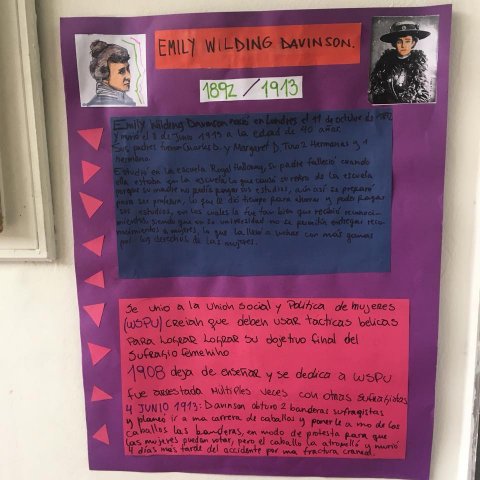 EMILY WILDING DAVINSON.
1892/1913
Emily Wilding Davinson, nació en Londres el 11 de octubre de
y murió el 8 de Junio 1913 a la edad de 40 años.
Sus padres fueron Charles D. y Margaret D. Tuvo 2 Hermanas y 1
hermano.
Estudió en la escuela Royal Holloway, su padre falleció cuando
ella estaba en la escuela, lo que causó su retiro de la escuela
porque su madre no podía pagar sus estudios, aún así se preparó
para ser profesora, lo que le dió tiempo para ahorrar y poder pagar
sus estudios, en los cuales le fue tan bien que recibió reconoci-
mientos, siendo que en su universidad no se permitía entregar reco-
nocimientos a mujeres, lo que la llevó a luchar con más ganas
por los derechos de las mujeres.
Se unio a la union social y Politica de mujeres
(WSPU) creian que deben usar tacticas belicas
para lograr lograr su objetivo final del
sufragio femenino
1908 deja de enseñar y se dedica a WSPU
Fue arrestada multiples veces con otras sufragistas
4 JUNIO 1913: Davinson obtuvo 2 banderas sufragistas
y planeó ir a una carrera de caballos y ponerle a uno de los
caballos las banderas, en modo de protesta para que
las mujeres puedan votar, pero el caballo la atropelló y murió
4 días más tarde del accidente por una fractura craneal.